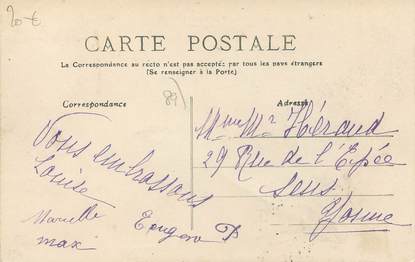 20 €
CARTE POSTALE
La Correspondance au recto n'est pas acceptée par tous les pays étrangers
(Se renseigner à la Poste)
Correspondance
89
Vous embrassons
Louise
Marcelle
max
Adresse
Mme Mr Héraud
29 Rue de l'Epée
Sens
Yonne